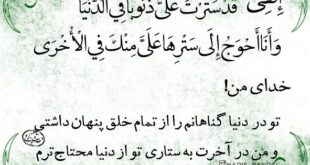 إِلَهِی قَدْ سَتَرْتَ عَلَیَّ ذُنُوبًا فِي الدُّنْيَا
وَ أَنَا أَحْوَجُ إِلَى سَتْرِهَا عَلَيَّ مِنْكَ فِي الْأُخْرَى
خدای من!
تو در دنیا گناهانم را از تمام خلق پنهان داشتی
و من در آخرت به ستاری تو از دنیا محتاج‌ترم